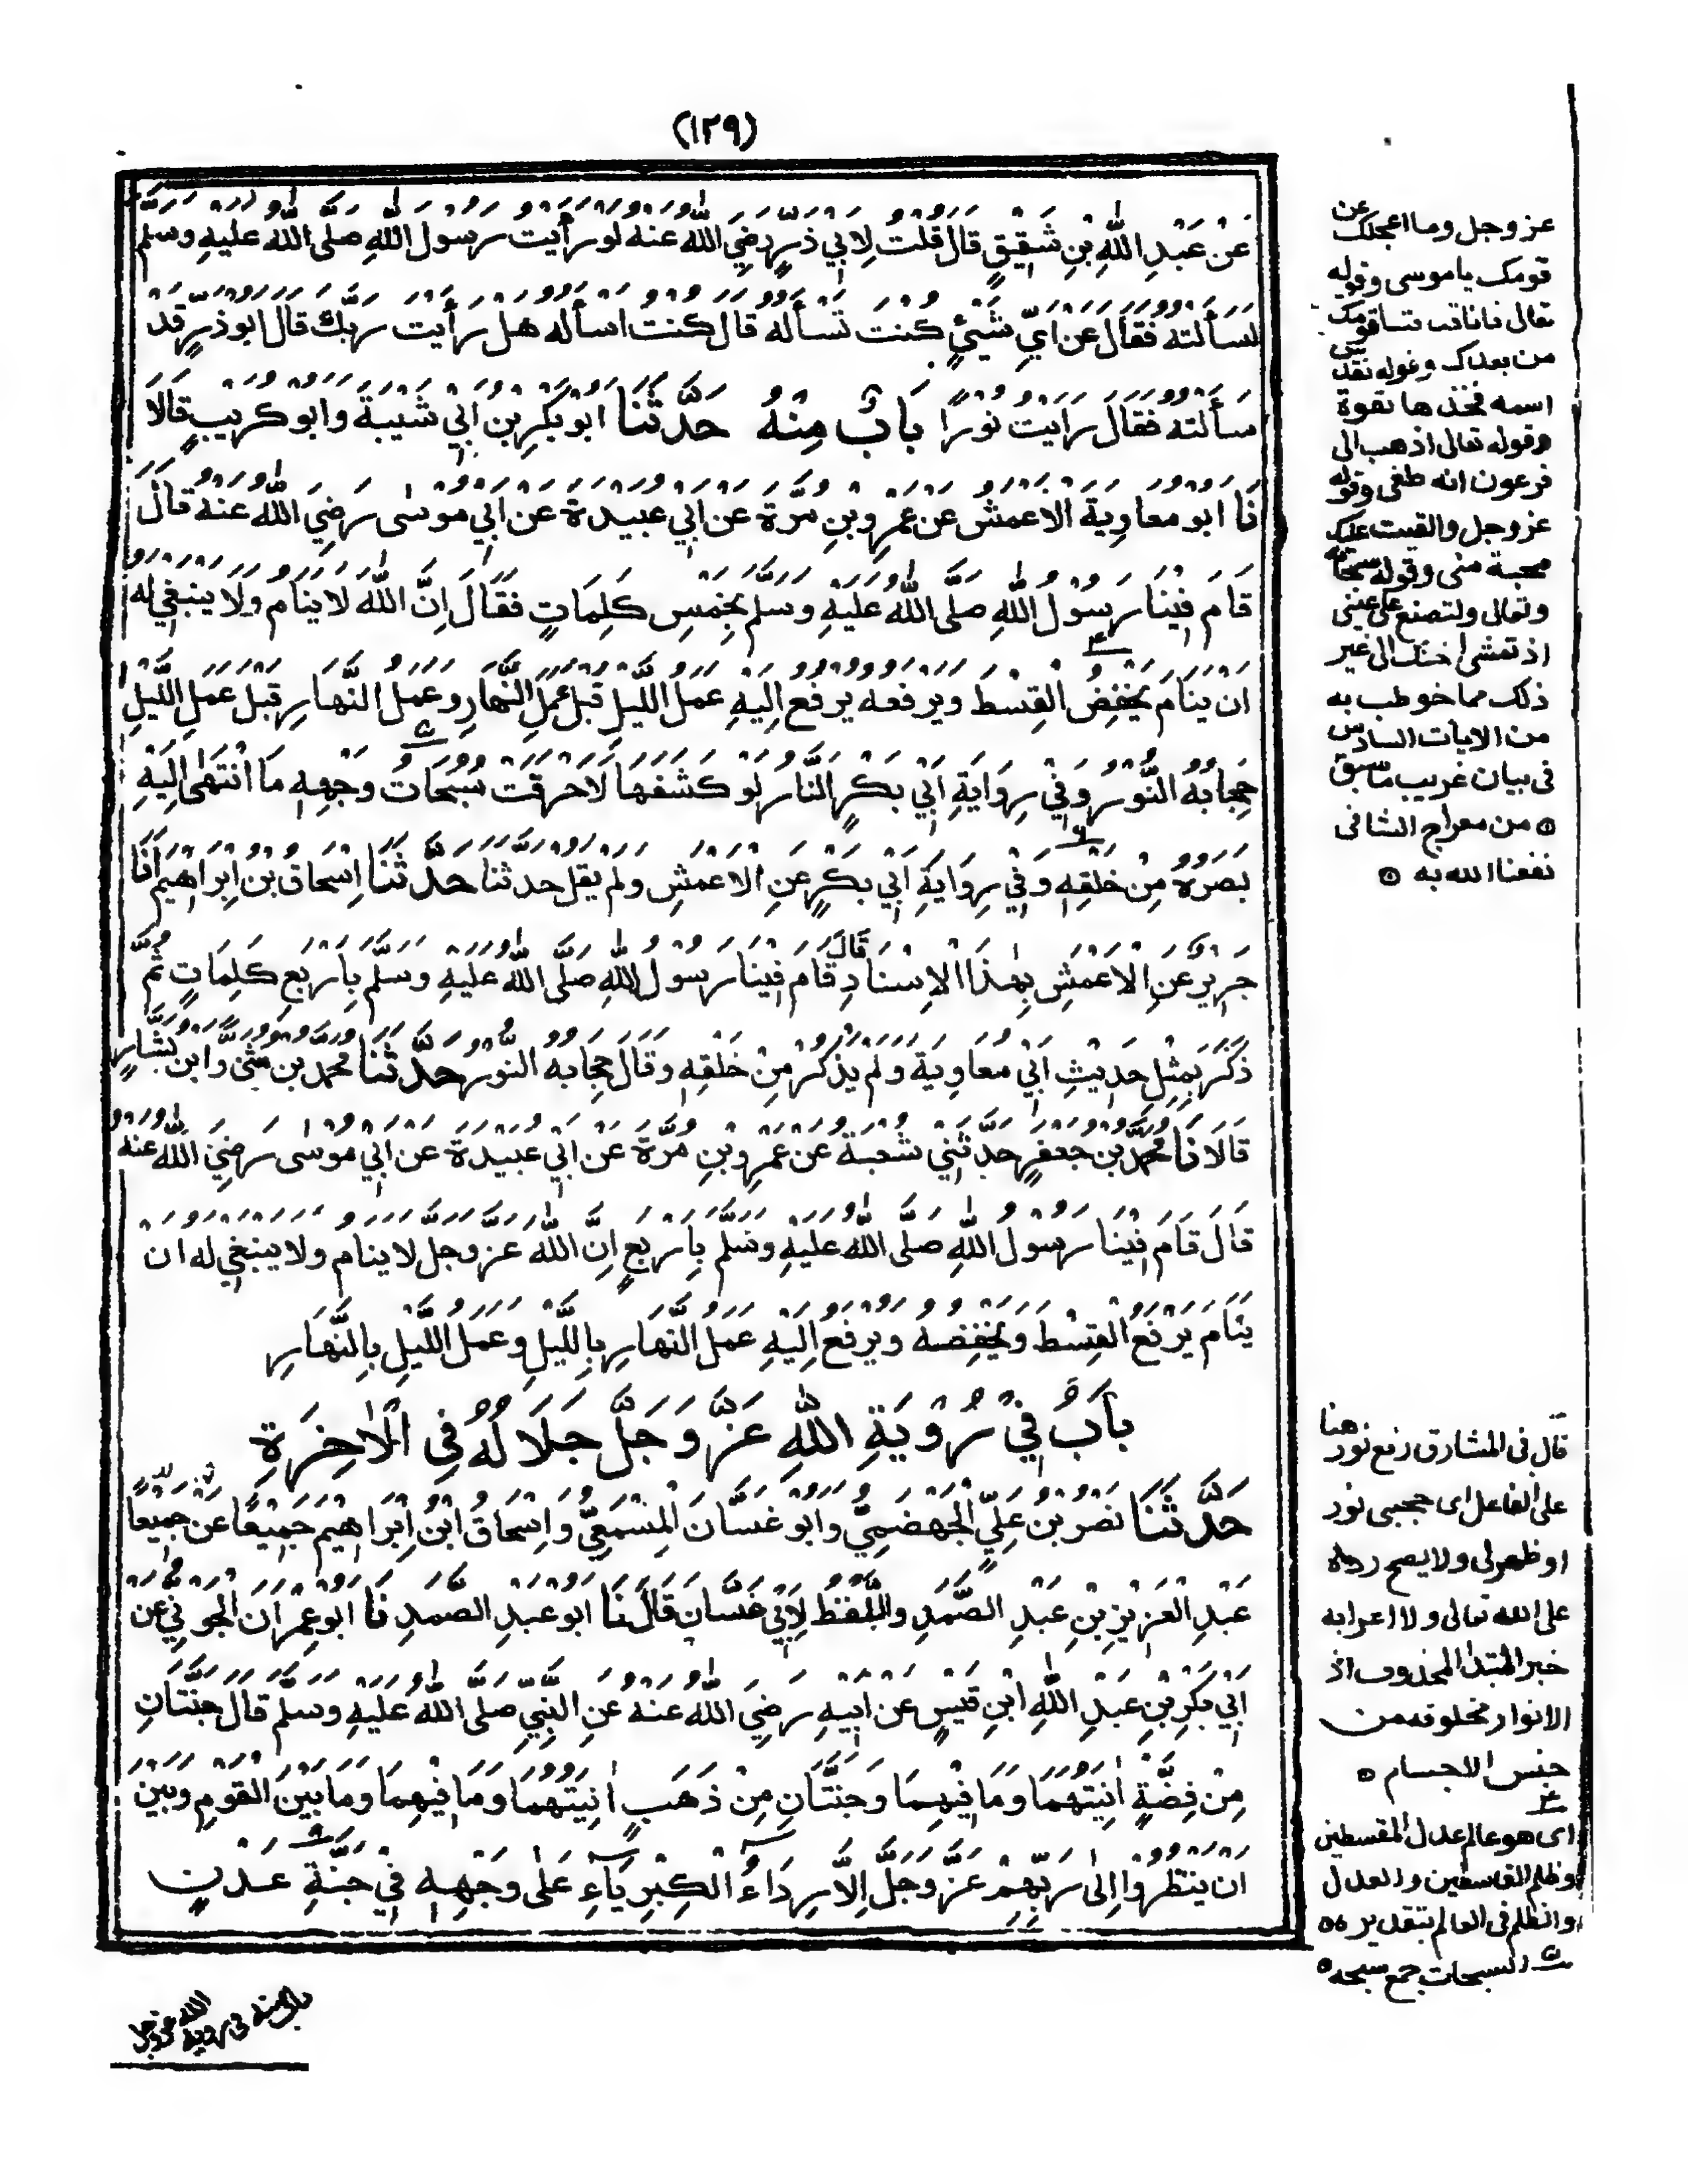 (١٢٩)
عَنْ عَبْدِ اللّٰهِ بْنِ شَقِيْقٍ قَالَ قُلْتُ لِاَبِي ذَرٍّ رَضِيَ اللّٰهُ عَنْهُ لَوْ رَأَيْتُ رَسُوْلَ اللّٰهِ صَلَّى اللّٰهُ عَلَيْهِ وَسَلَّمَ
لَسَأَلْتُهُ فَقَالَ عَنْ اَيِّ شَيْئٍ كُنْتَ تَسْأَلُهُ قَالَ كُنْتُ اَسْأَلُهُ هَلْ رَأَيْتَ رَبَّكَ قَالَ اَبُوْ ذَرٍّ قَدْ
سَأَلْتُهُ فَقَالَ رَاَيْتُ نُوْرًا بَابٌ مِنْهُ حَدَّثَنَا اَبُوْ بَكْرِ بْنُ اَبِيْ شَيْبَةَ وَاَبُوْ كُرَيْبٍ قَالَا
نَا اَبُوْ مُعَاوِيَةَ الْاَعْمَشُ عَنْ عَمْرِو بْنِ مُرَّةَ عَنْ اَبِيْ عُبَيْدَةَ عَنْ اَبِيْ مُوْسٰى رَضِيَ اللّٰهُ عَنْهُ قَالَ
قَامَ فِيْنَا رَسُوْلُ اللّٰهِ صَلَّى اللّٰهُ عَلَيْهِ وَسَلَّمَ بِخَمْسِ كَلِمَاتٍ فَقَالَ اِنَّ اللّٰهَ لَا يَنَامُ وَلَا يَنْبَغِيْ لَهُ
اَنْ يَنَامَ يَخْفِضُ الْقِسْطَ وَيَرْفَعُهُ يُرْفَعُ اِلَيْهِ عَمَلُ اللَّيْلِ قَبْلَ عَمَلِ النَّهَارِ وَعَمَلُ النَّهَارِ قَبْلَ عَمَلِ اللَّيْلِ
حِجَابُهُ النُّوْرُ وَفِيْ رِوَايَةِ اَبِيْ بَكْرٍ النَّارُ لَوْ كَشَفَهَا لَاَحْرَقَتْ سُبُحَاتُ وَجْهِهِ مَا انْتَهٰى اِلَيْهِ
بَصَرُهُ مِنْ خَلْقِهِ وَفِيْ رِوَايَةِ اَبِيْ بَكْرٍ عَنِ الْاَعْمَشِ وَلَمْ يَقُلْ حَدَّثَنَا حَدَّثَنَا اِسْحَاقُ بْنُ اِبْرَاهِيْمَ اَنَا
جَرِيْرٌ عَنِ الْاَعْمَشِ بِهٰذَا الْاِسْنَادِ قَالَ قَامَ فِيْنَا رَسُوْلُ اللّٰهِ صَلَّى اللّٰهُ عَلَيْهِ وَسَلَّمَ بِاَرْبَعِ كَلِمَاتٍ ثُمَّ
ذَكَرَ بِمِثْلِ حَدِيْثِ اَبِيْ مُعَاوِيَةَ وَلَمْ يَذْكُرْ مِنْ خَلْقِهِ وَقَالَ حِجَابُهُ النُّوْرُ حَدَّثَنَا مُحَمَّدُ بْنُ مُثَنّٰى وَابْنُ بَشَّارٍ
قَالَا نَا مُحَمَّدُ بْنُ جَعْفَرٍ حَدَّثَنِيْ شُعْبَةُ عَنْ عَمْرِو بْنِ مُرَّةَ عَنْ اَبِيْ عُبَيْدَةَ عَنْ اَبِيْ مُوْسٰى رَضِيَ اللّٰهُ عَنْهُ
قَالَ قَامَ فِيْنَا رَسُوْلُ اللّٰهِ صَلَّى اللّٰهُ عَلَيْهِ وَسَلَّمَ بِاَرْبَعٍ اِنَّ اللّٰهَ عَزَّ وَجَلَّ لَا يَنَامُ وَلَا يَنْبَغِيْ لَهُ اَنْ
يَنَامَ يَرْفَعُ الْقِسْطَ وَيَخْفِضُهُ وَيُرْفَعُ اِلَيْهِ عَمَلُ النَّهَارِ بِاللَّيْلِ وَعَمَلُ اللَّيْلِ بِالنَّهَارِ
بَابٌ فِيْ رُوْيَةِ اللّٰهِ عَزَّ وَجَلَّ جَلَالُهُ فِى الْاٰخِرَةِ
حَدَّثَنَا نَصْرُ بْنُ عَلِيٍّ الْجَهْضَمِيُّ وَاَبُوْ غَسَّانَ الْمِسْمَعِيُّ وَاِسْحَاقُ ابْنُ اِبْرَاهِيْمَ جَمِيْعًا عَنْ جَمِيْعًا
عَبْدِ الْعَزِيْزِ بْنِ عَبْدِ الصَّمَدِ وَاللَّفْظُ لِاَبِيْ غَسَّانَ قَالَ نَا اَبُوْ عَبْدِ الصَّمَدِ نَا اَبُوْ عِمْرَانَ الْجَوْنِيُّ عَنْ
اَبِيْ بَكْرِ بْنِ عَبْدِ اللّٰهِ ابْنِ قَيْسٍ عَنْ اَبِيْهِ رَضِيَ اللّٰهُ عَنْهُ عَنِ النَّبِيِّ صَلَّى اللّٰهُ عَلَيْهِ وَسَلَّمَ قَالَ جَنَّتَانِ
مِنْ فِضَّةٍ اٰنِيَتُهُمَا وَمَا فِيْهِمَا وَجَنَّتَانِ مِنْ ذَهَبٍ اٰنِيَتُهُمَا وَمَا فِيْهِمَا وَمَا بَيْنَ الْقَوْمِ وَبَيْنَ
اَنْ يَنْظُرُوْا اِلٰى رَبِّهِمْ عَزَّ وَجَلَّ اِلَّا رِدَاءُ الْكِبْرِيَاءِ عَلٰى وَجْهِهِ فِيْ جَنَّةِ عَدْنٍ
عز وجل وما اعجلك عن
قومك ياموسى وقوله
تعالى فانا قد فتنا قومك
من بعدك وقوله تقدس
اسمه فخذها بقوة
وقوله تعالى اذهب الى
فرعون انه طغى وقوله
عز وجل والقيت عليك
محبة منى وقوله سبحانه
وتعالى ولتصنع على عينى
اذ تمشى اختك الى غير
ذلك مما خوطب به
من الايات السادس
فى بيان غريب ما سبق
من معراج الشافى
نفعنا الله به
قال فى المشارق رفع نور هنا
على الفاعل اى حجبى نور
او ظهر لى ولا يصح رده
على الله تعالى ولا اعرابه
خبر المبتدا المحذوف اذ
الانوار مخلوقه من
جنس الاجسام
اى هو عالم عدل المقسطين
وظلم القاسطين والعدل
والظلم فى العالم بتقديره
السبحات جمع سبحه
باب منه فى روية الله عز وجل